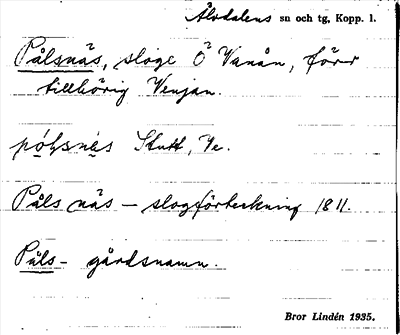 Älvdalens sn och tg, Kopp. l.
Pålsnäs, sloge Ö Vanån, förr
tillhörig Venjan.
Skutt, Ve.
Påls näs – slogförteckning 1811.
Påls- gårdsnamn.
Bror Lindén 1935.